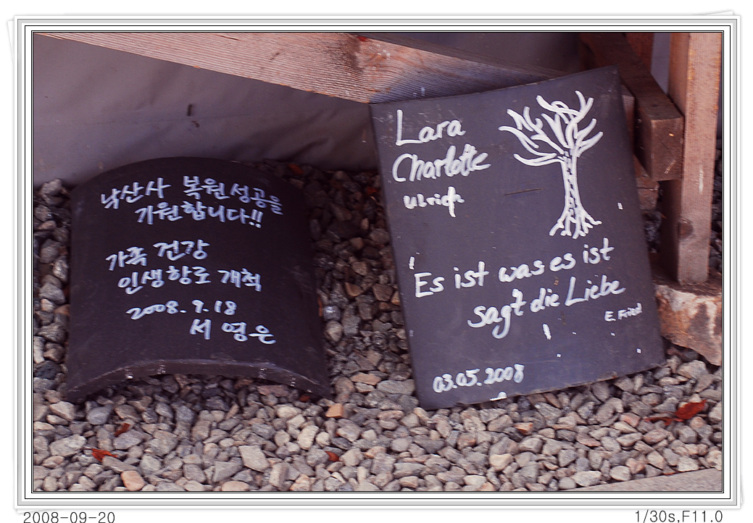 낙산사 복원성공을
기원합니다!!
가족 건강
인생항로 개척
2008.9.18
서영은
Lara
Charlotte
Ulrich
Es ist was es ist
sagt die Liebe
E. Fried
03.05.2008
2008-09-20
1/30s,F11.0